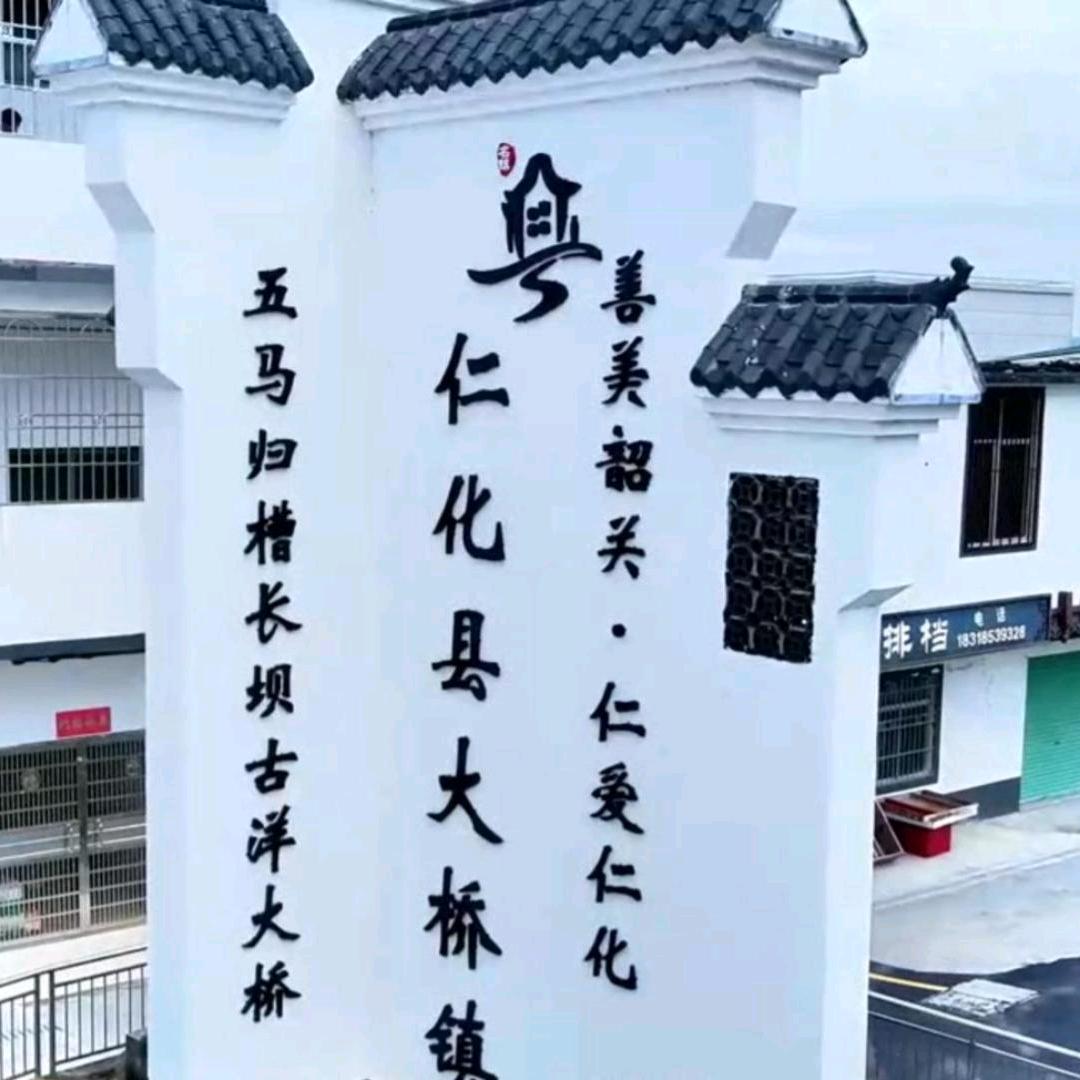 粤
善美韶关·仁爱仁化
仁化县大桥镇
五马归槽长坝古洋大桥
排档
电话
18318539326